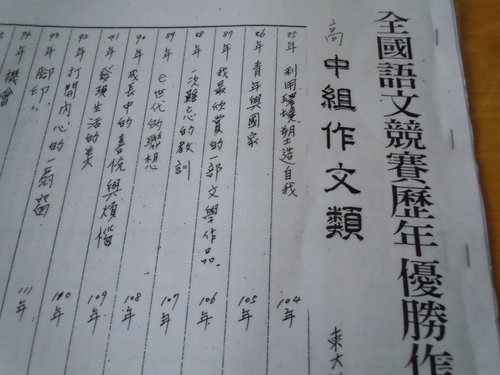 全國語文競賽歷年優勝作
高中組作文類
東大
85年 利用環境塑造自我 104年
86年 青年與國家 105年
87年 我最欣賞的一部文學作品 106年
88年 一次難忘的教訓 107年
89年 e世代的聯想 108年
90年 成長中的喜悅與煩惱 109年
91年 發現生活的美 110年
92年 打開內心的一扇窗 111年
93年 腳印
94年 機會